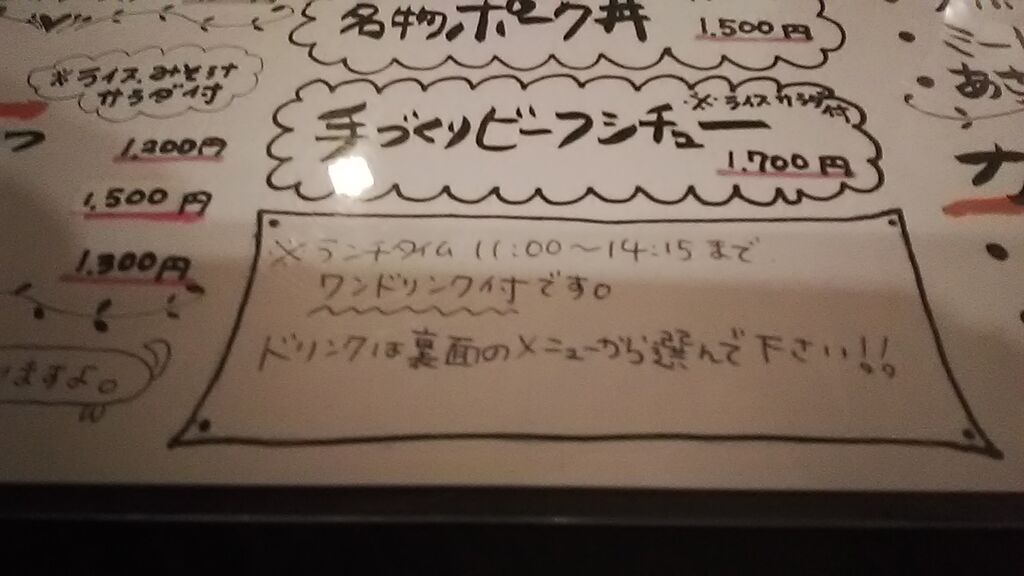 名物ポーク丼
1.500円
※ライス、みそ汁
サラダ付
手づくりビーフシチュー
※ライスサラダ付
1.700円
1.200円
1.500円
1.300円
※ランチタイム 11:00〜14:15まで
ワンドリンク付です。
ドリンクは裏面のメニューから選んで下さい!!
ますよ。
ミート
あさ
ナ